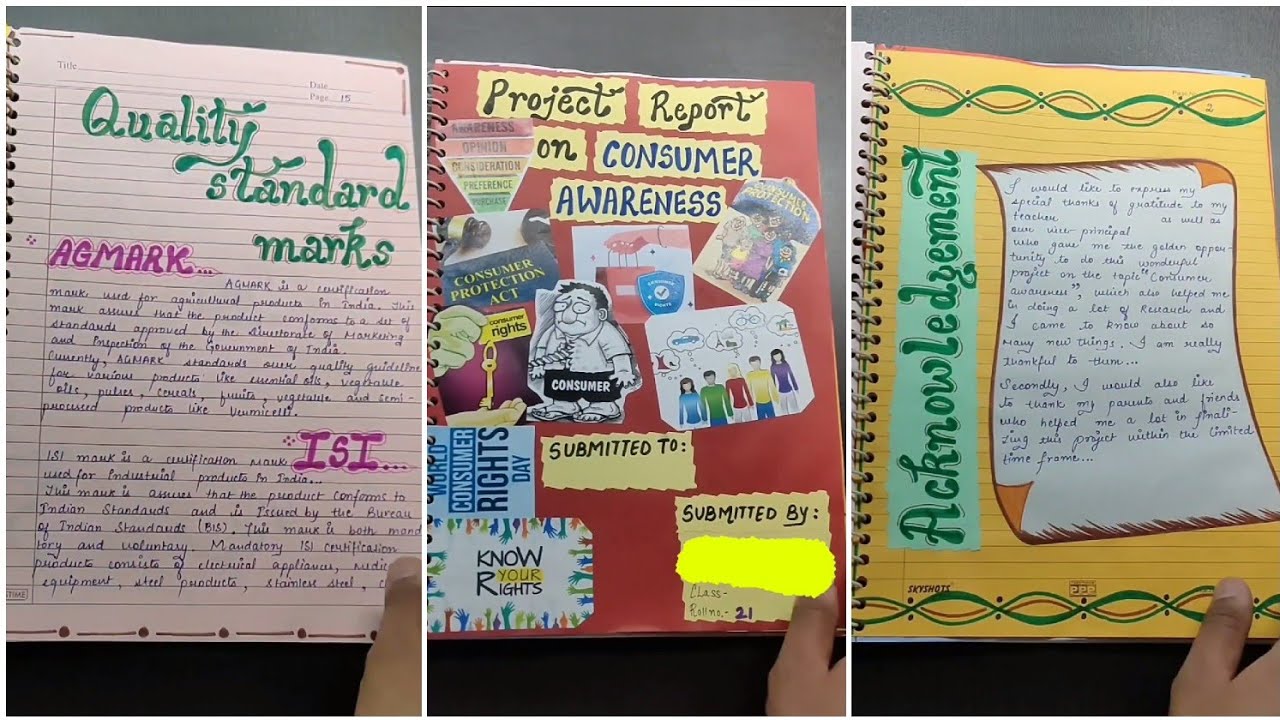 Title
Date
Page 15
Quality
standard
marks
AGMARK...
AGMARK is a certification
mark used for agricultural products in India. This
mark assures that the product conforms to a set of
standards approved by the Directorate of Marketing
and Inspection of the Government of India.
Currently, AGMARK standards over quality guideline
for various products like essential oils, vegetable
oils, pulses, cereals, fruits, vegetable and semi-
processed products like Vermicelli.
ISI...
ISI mark is a certification mark
used for Industrial products in India...
This mark is assures that the product conforms to
Indian Standards and is Issued by the Bureau
of Indian Standards (BIS). This mark is both mond
tory and voluntary. Mandatory ISI certification
products consists of electrical appliances,
equipment, steel products, stainless steel,
Project Report
on CONSUMER
AWARENESS
AWARENESS
OPINION
CONSIDERATION
PREFERENCE
PURCHASE
CONSUMER
PROTECTION
CONSUMER
PROTECTION
ACT
consumer
rights
CONSUMER
RIGHTS
CONSUMER
WORLD
CONSUMER
RIGHTS
DAY
SUBMITTED TO:
SUBMITTED BY:
Class-
Rollno.- 21
KNOW
YOUR
RIGHTS
2
Acknowledgement
I would like to express my
special thanks of gratitude to my
teacher as well as
our vice principal
who gave me the golden oppor-
tunity to do this wonderful
project on the topic "Consumer
awareness", which also helped me
in doing a lot of Research and
I came to know about so
many new things. I am really
thankful to them...
Secondly, I would also like
to thank my parents and friends
who helped me a lot in finali-
zing this project within the limited
time frame...
SKYSHOTS